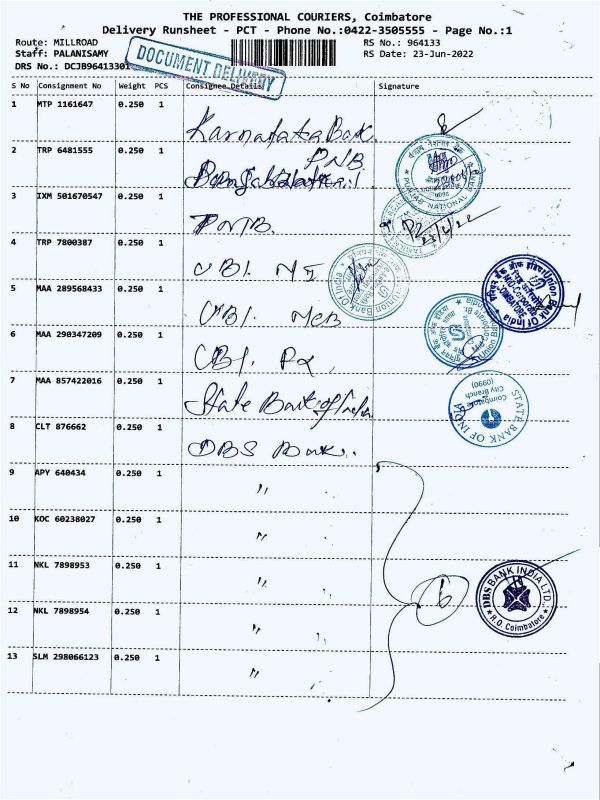 THE PROFESSIONAL COURIERS, Coimbatore
Delivery Runsheet - PCT - Phone No.:0422-3505555 - Page No.:1
Route: MILLROAD
RS No.: 964133
Staff: PALANISAMY
RS Date: 23-Jun-2022
DRS No.: DCJB96413301
DOCUMENT DELIVERY
S No Consignment No Weight PCS Consignee Details Signature
1 MTP 1161647 0.250 1 Karnataka Bank
2 TRP 6481555 0.250 1 PNB
PUNJAB NATIONAL BANK
3 IXM 501670547 0.250 1 PNB.
4 TRP 7800387 0.250 1 UBI.
Union Bank Of India
5 MAA 289568433 0.250 1 UBI. MCB
Union Bank Of India
6 MAA 290347209 0.250 1 UBI.
7 MAA 857422016 0.250 1 State Bank of India
STATE BANK OF INDIA
City Branch
Coimbatore
(0990)
8 CLT 876662 0.250 1 DBS Bank..
9 APY 640434 0.250 1 "
10 KOC 60238027 0.250 1 "
11 NKL 7898953 0.250 1 " "
12 NKL 7898954 0.250 1 " "
13 SLM 298066123 0.250 1 "
DBS BANK INDIA LTD.
R.O. Coimbatore